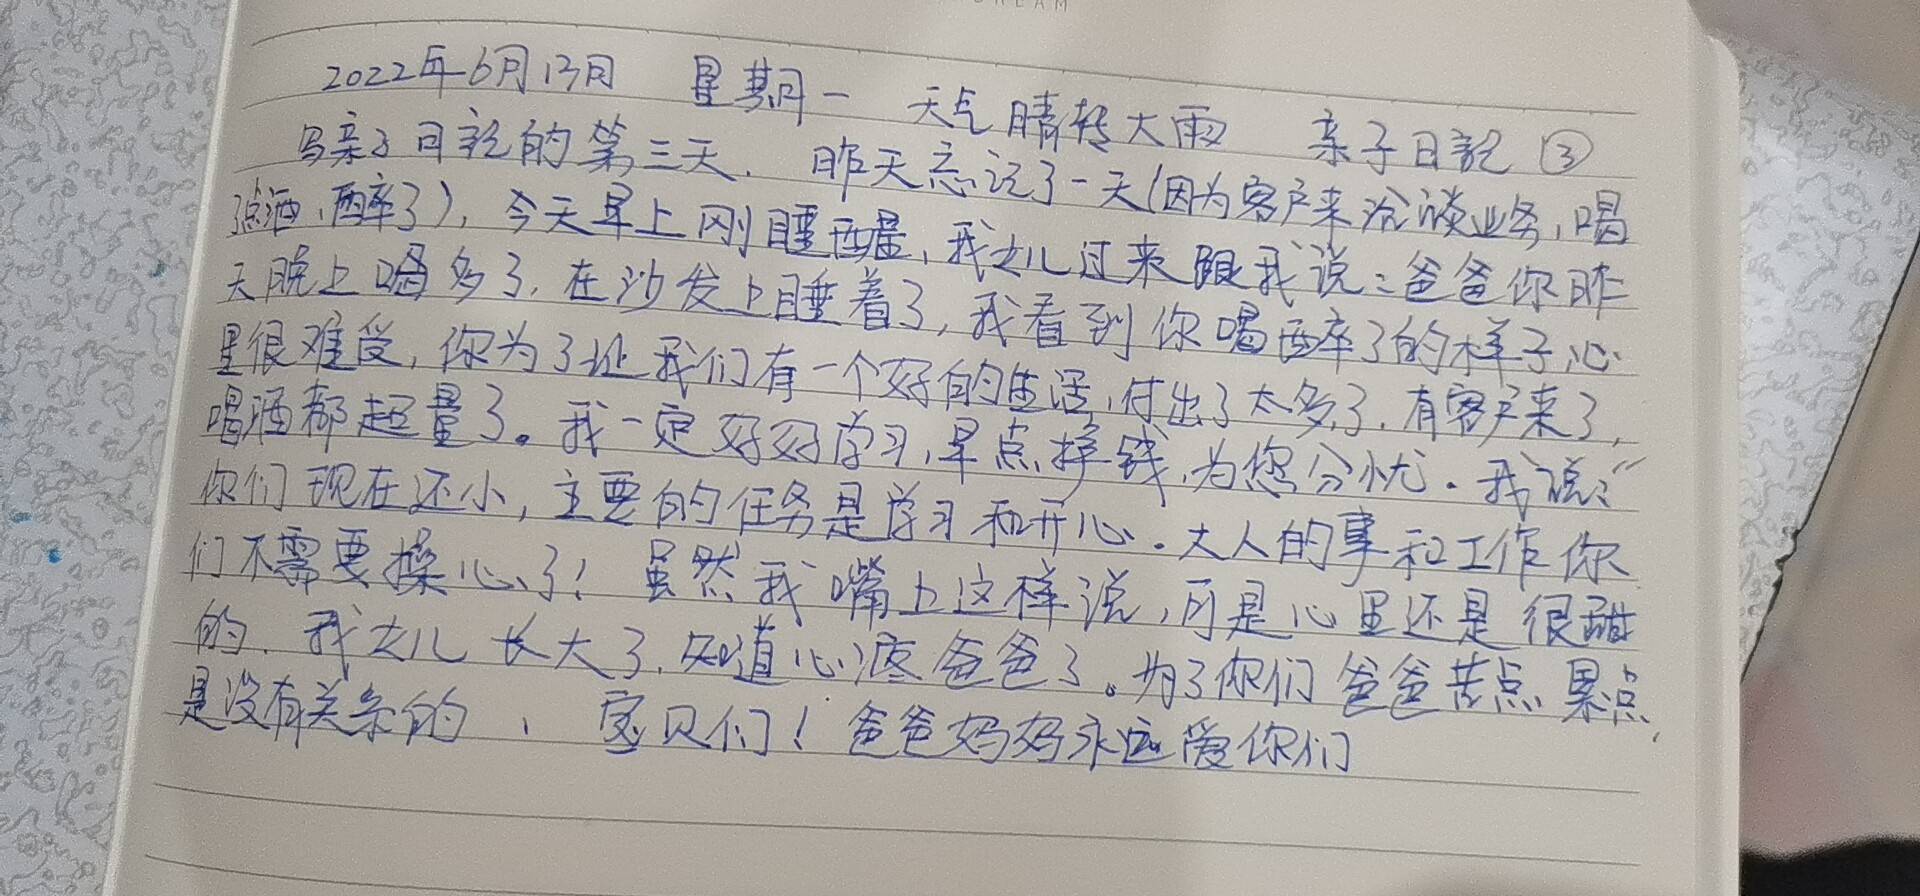 2022年6月13日 星期一 天气晴转大雨 亲子日記 ③
写亲子日記的第三天. 昨天忘记了一天(因为客户来洽谈业务,喝
了点酒,醉了),今天早上刚睡醒,我女儿过来跟我说:爸爸你昨
天晚上喝多了,在沙发上睡着了,我看到你喝醉了的样子心
里很难受,你为了让我们有一个好的生活,付出了太多了,有客户来了,
喝酒都超量了。我一定好好学习,早点挣钱,为您分忧.我说:“
你们现在还小,主要的任务是学习和开心.大人的事和工作你
们不需要操心了!虽然我嘴上这样说,可是心里还是很甜
的,我女儿长大了,知道心疼爸爸了。为了你们爸爸苦点累点,
是没有关系的,宝贝们!爸爸妈妈永远爱你们